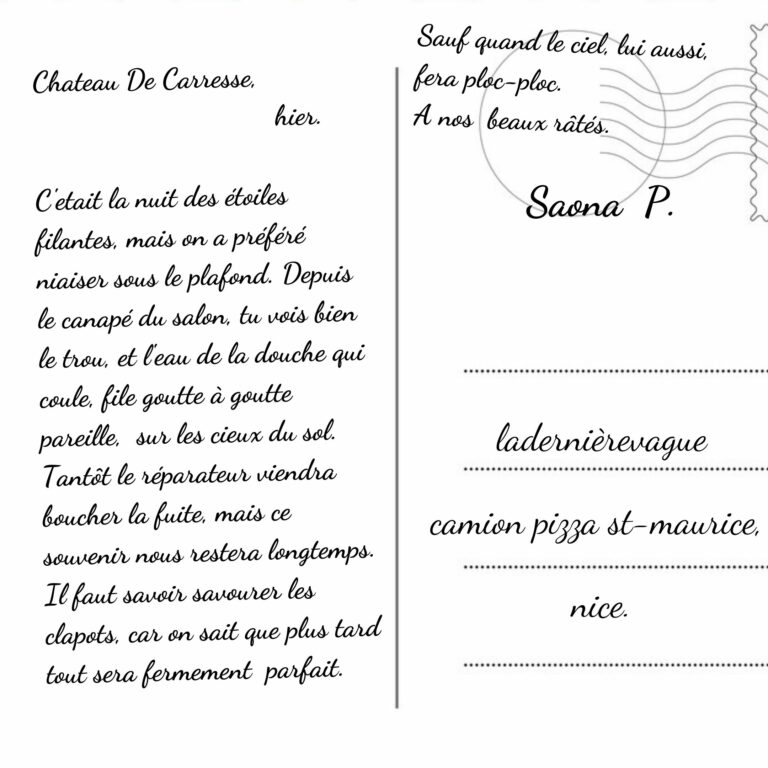 Chateau De Carresse,
hier.
C'etait la nuit des étoiles
filantes, mais on a préféré
niaiser sous le plafond. Depuis
le canapé du salon, tu vois bien
le trou, et l'eau de la douche qui
coule, file goutte à goutte
pareille, sur les cieux du sol.
Tantôt le réparateur viendra
boucher la fuite, mais ce
souvenir nous restera longtemps.
Il faut savoir savourer les
clapots, car on sait que plus tard
tout sera fermement parfait.
Sauf quand le ciel, lui aussi,
fera ploc-ploc.
A nos beaux râtés.
Saona P.
ladernièrevague
camion pizza st-maurice,
nice.